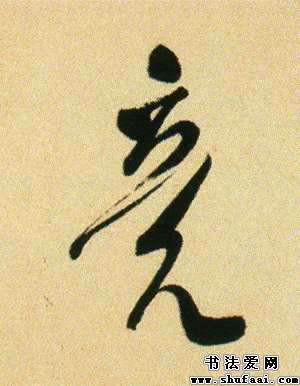 竟
书法爱网
www.shufaai.com